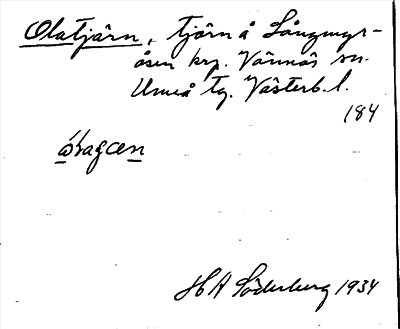 Olatjärn, tjärn å Långmyr-
åsen krp. Vännäs sn.
Umeå tg. Västerb. l.
184
HA Söderberg 1934